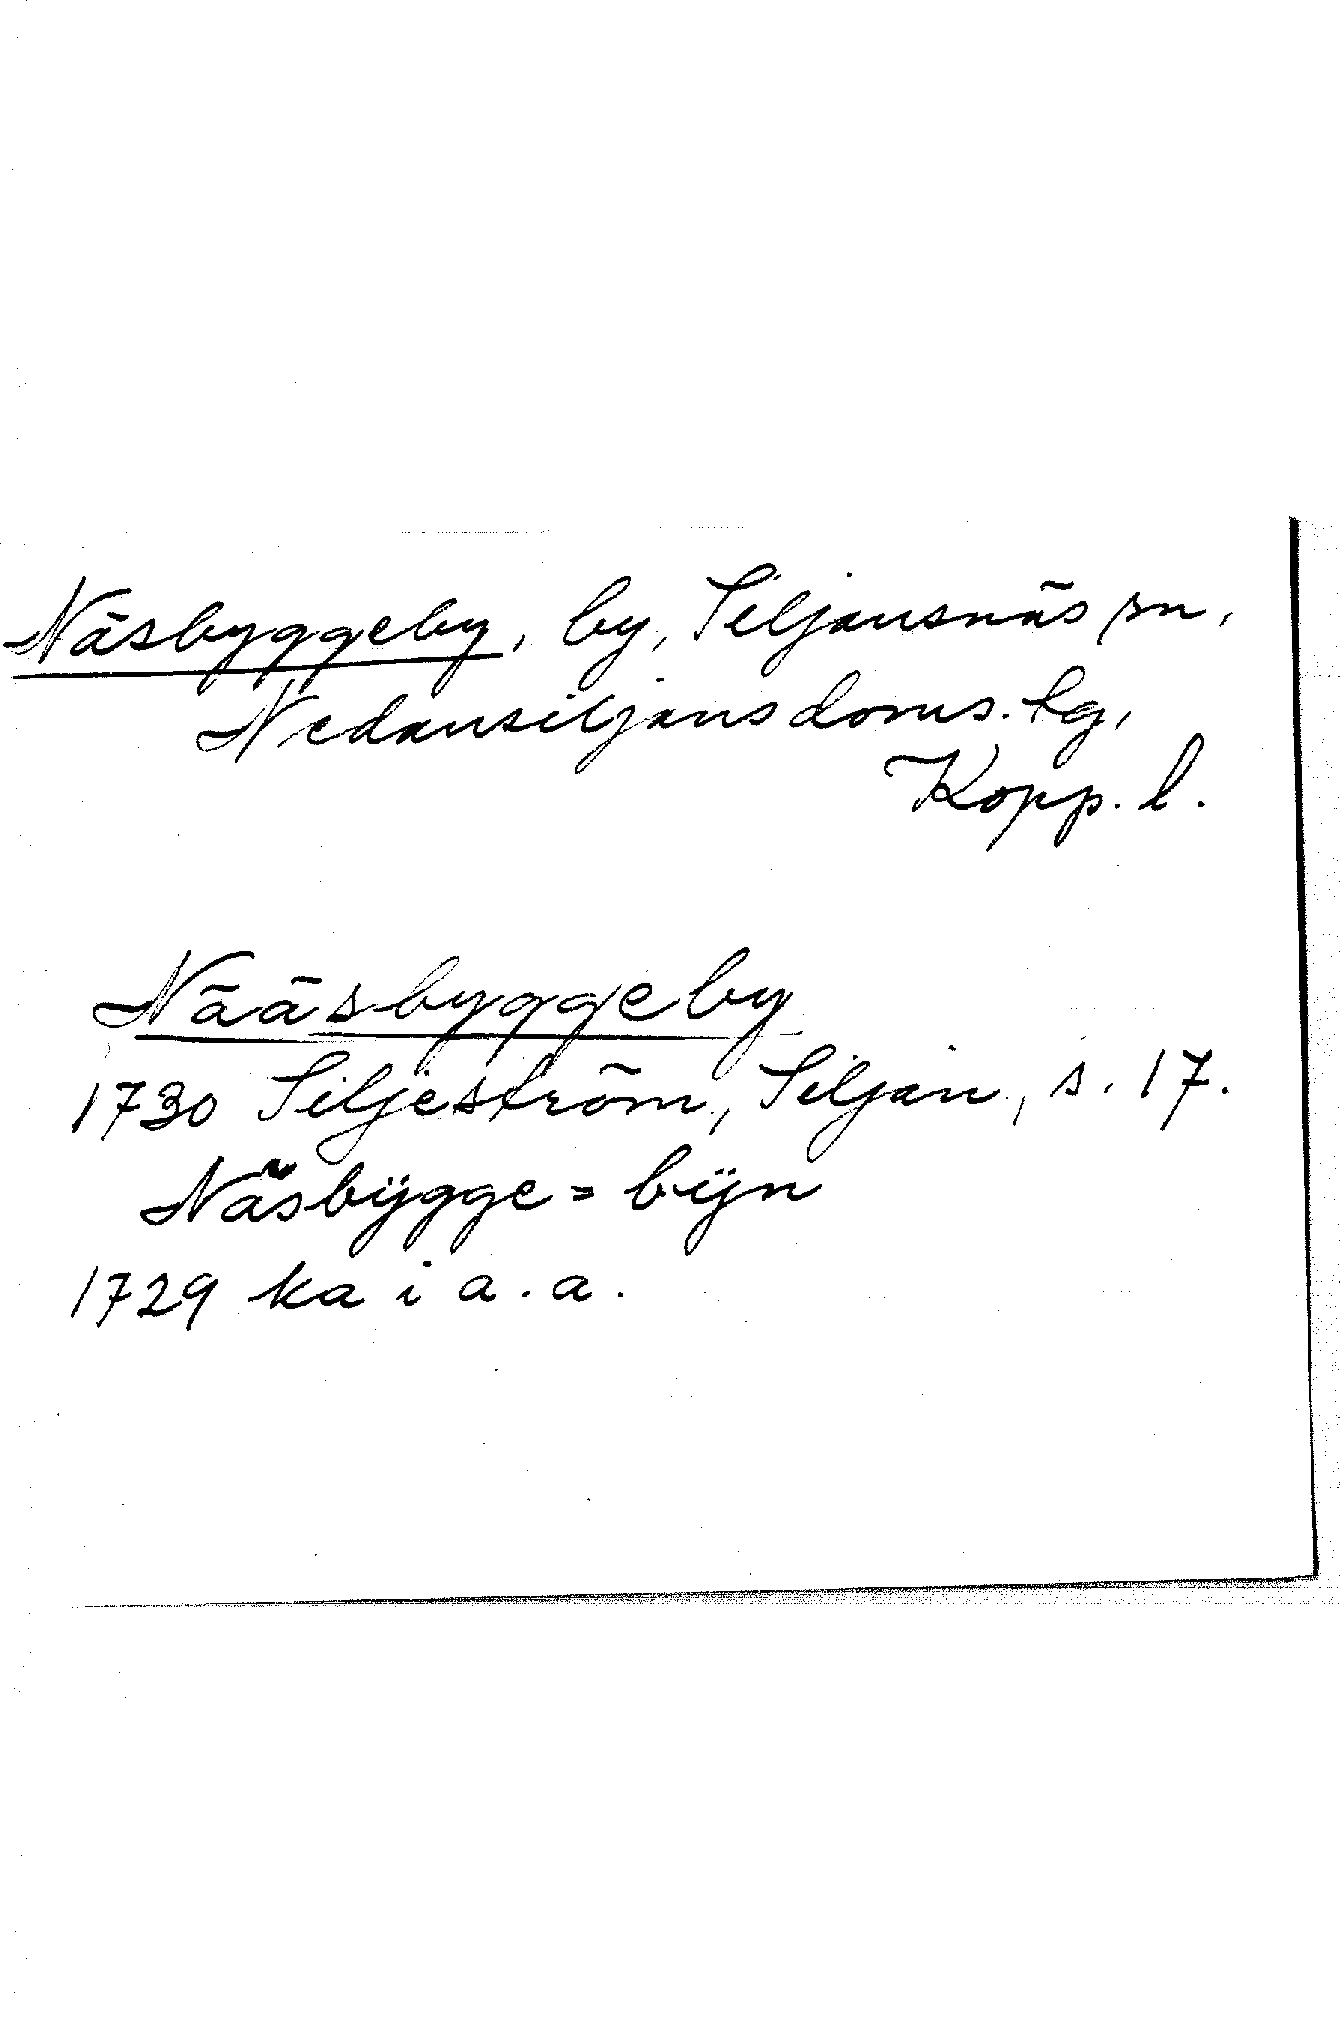 Näsbyggeby, by, Siljansnäs sn,
Nedansiljans doms. tg,
Kopp. l.
Nääsbyggeby
1730 Siljeström, Siljan, s. 17.
Näsbÿgge=bÿn
1729 ka i a.a.